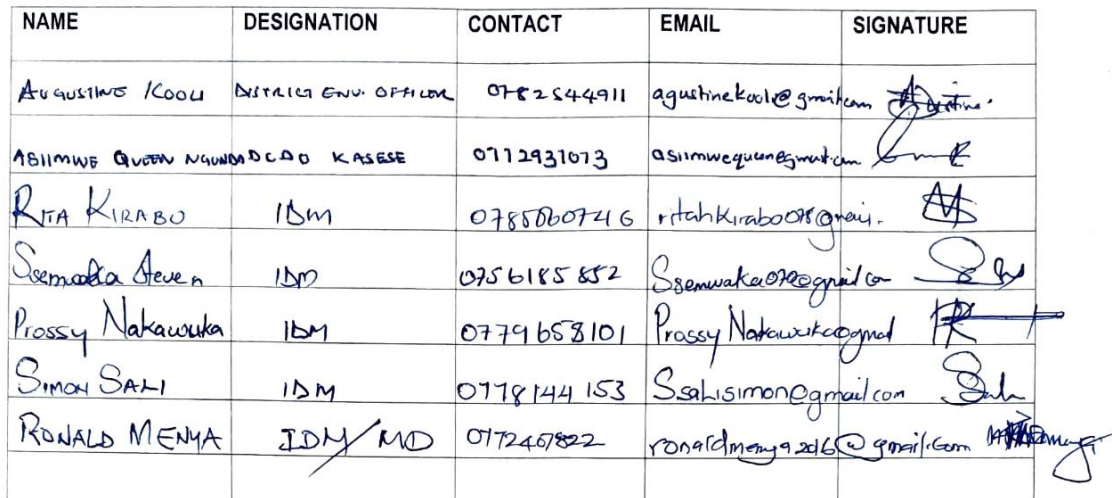 NAME DESIGNATION CONTACT EMAIL SIGNATURE
AUGUSTINE KOOLI DISTRICT ENV. OFFICER 0782544911 agustinekooli@gmail.com
ASIIMWE QUEEN NGUNDA DCDO KASESE 0772931073 asiimwequeen@gmail.com
RITA KIRABO IDM 0785060746 ritahkirabo078@gmai.
Ssemwaka Steven IDM 0756185852 Ssemwaka070@gmail.com
Prossy Nakawuka IDM 0779658101 ProssyNakawuka@gmal
SIMON SALI IDM 0778144153 Ssalisimon@gmail.com
RONALD MENYA IDM/MD 0772467822 ronaldmenya2016@gmail.com